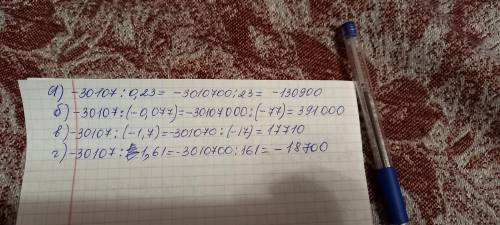 а) -30107 : 0,23 = -3010700 : 23 = -130900
б) -30107 : (-0,077) = -30107000 : (-77) = 391000
в) -30107 : (-1,7) = -301070 : (-17) = 17710
г) -30107 : 1,61 = -3010700 : 161 = -18700